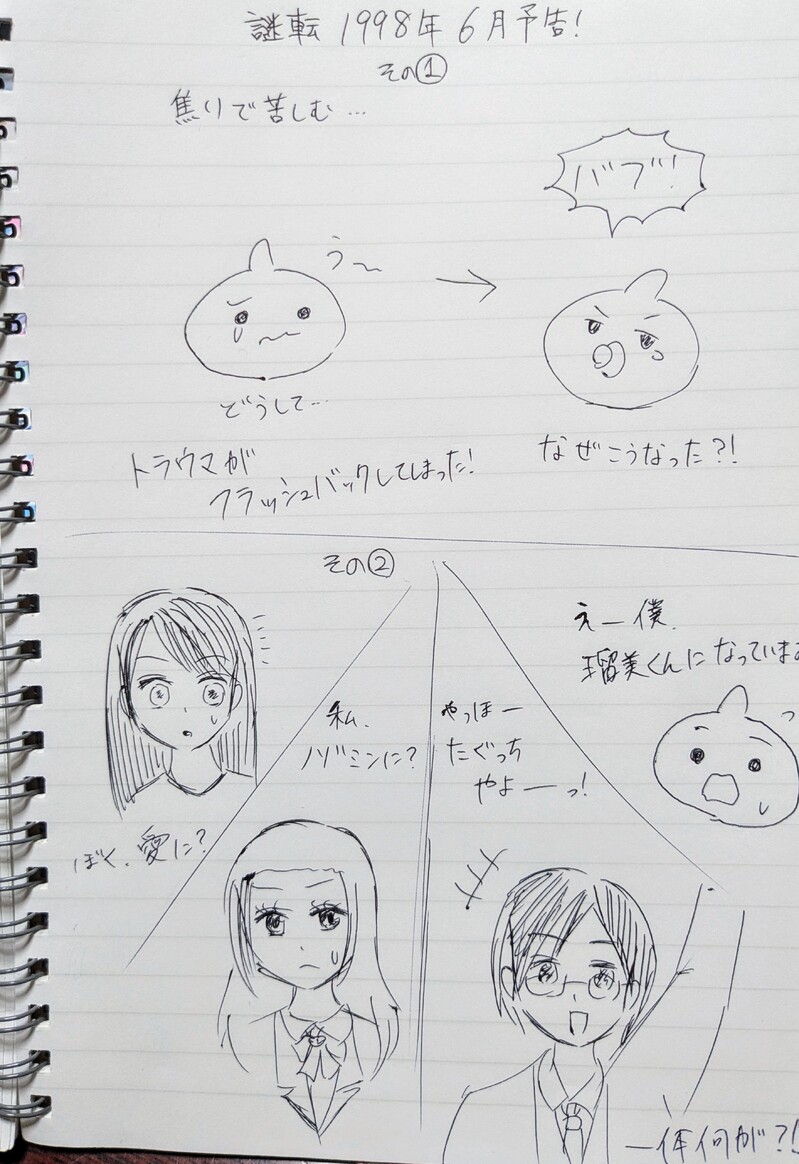 謎転 1998年 6月予告!
その①
焦りで苦しむ…
バブ!
う〜
どうして…
トラウマが
フラッシュバックしてしまった!
なぜこうなった?!
その②
ぼく、愛に?
私、
ノゾミンに?
やっほー
たぐっち
やよーっ!
えー僕、
瑠美くんになっていま
一体何が?!